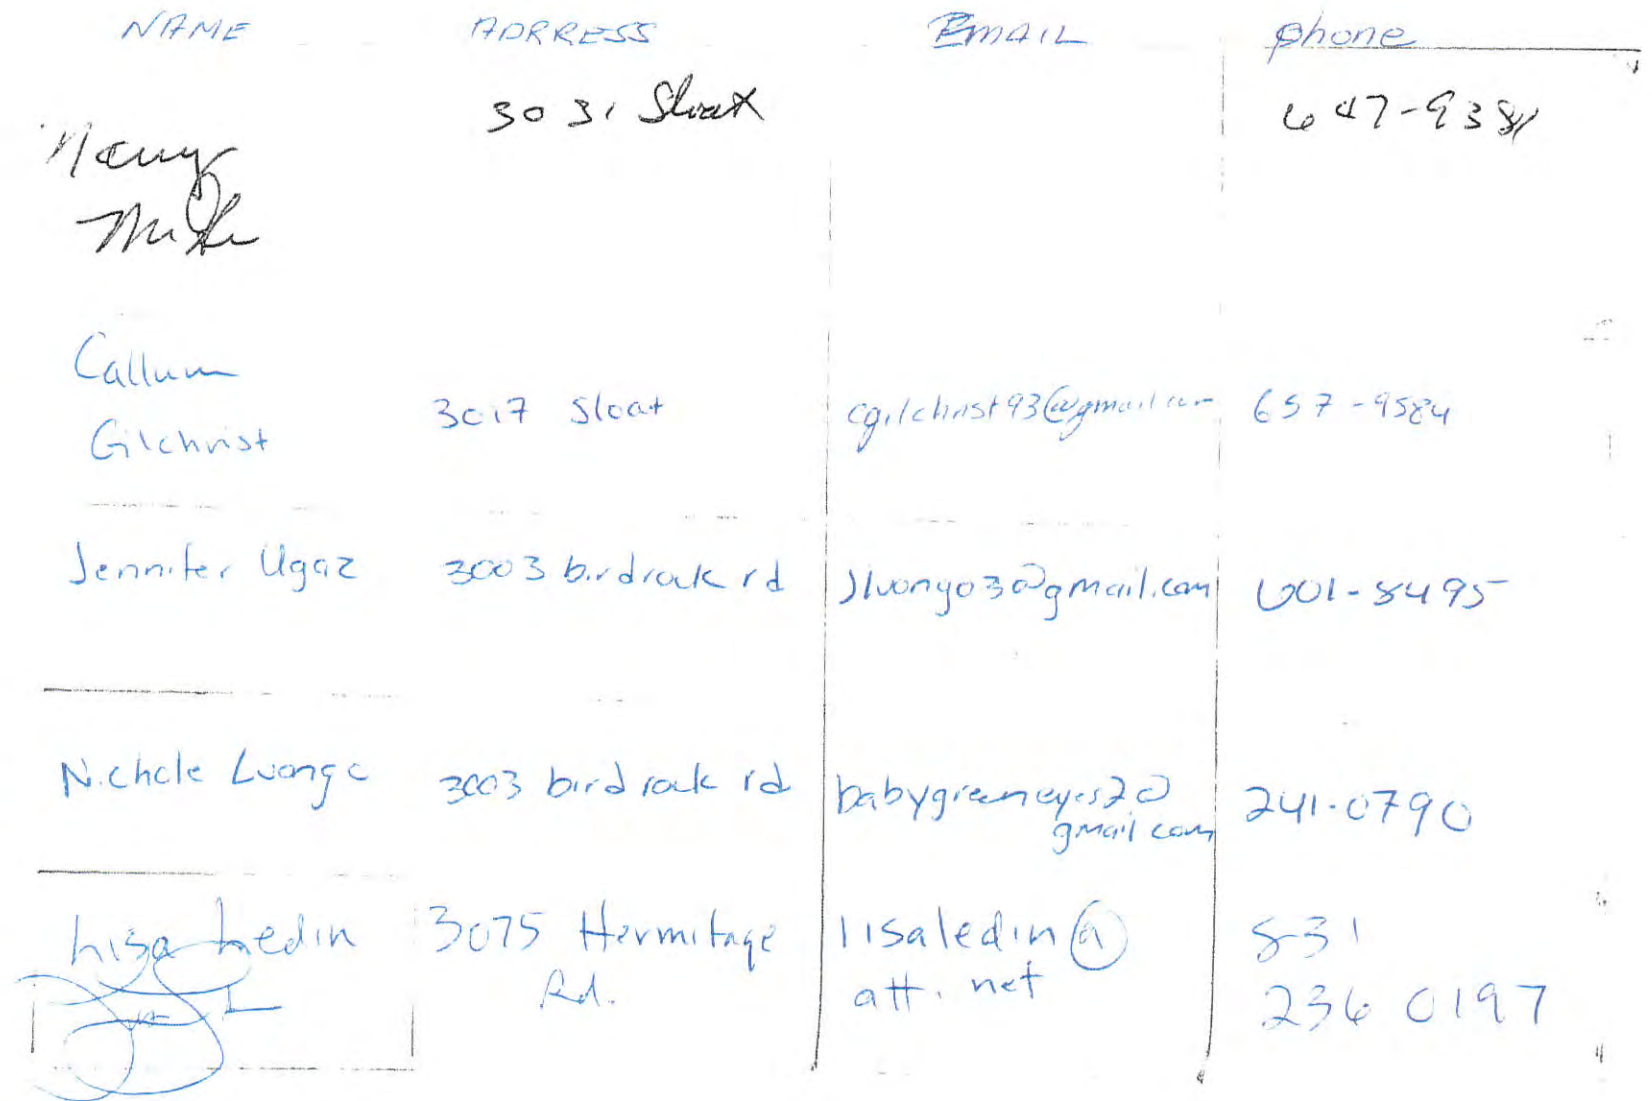 NAME ADRRESS EMAIL phone
3031 Sloat 647-9381
Nancy
Mike
Callum
Gilchrist 3017 Sloat cgilchrist93@gmail.com 657-9584
Jennifer Ugaz 3003 birdrock rd jluongo3@gmail.com 601-8495
Nichole Luongo 3003 birdrock rd babygreeneyes2@
gmail.com 241-0790
Lisa Ledin 3075 Hermitage lisaledin@ 831
Rd. att.net 236 0197